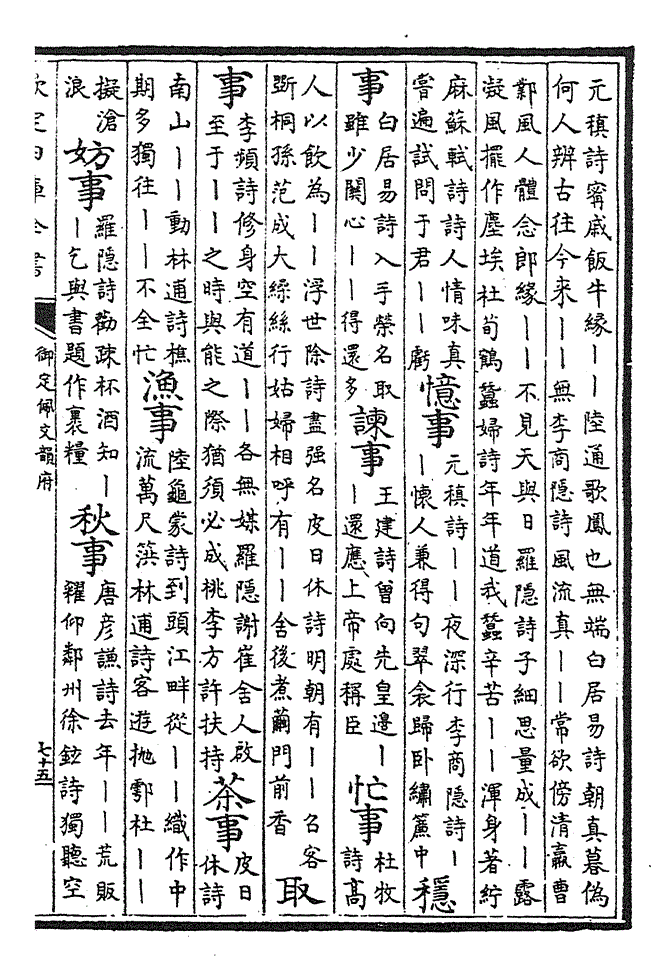 元稹詩寗戚飯牛緣丨丨陸通歌鳳也無端白居易詩朝真暮偽
何人辨古往今來丨丨無李商隱詩風流真丨丨常欲傍清羸曹
鄴風人體念郎緣丨丨不見天與日羅隱詩子細思量成丨丨露
凝風擺作塵埃杜荀鶴蠶婦詩年年道我蠶辛苦丨丨渾身著紵
麻蘇軾詩詩人情味真
嘗遍試問于君丨丨虧
憶事
元稹詩丨丨夜深行李商隱詩丨
丨懷人兼得句翠衾歸卧繡簾中
穩
事
白居易詩入手榮名取
雖少關心丨丨得還多
諫事
王建詩曾向先皇邊丨
丨還應上帝處稱臣
忙事
杜牧
詩高
人以飲為丨丨浮世除詩盡强名皮日休詩明朝有丨丨名客
斲桐孫范成大繰絲行姑婦相呼有丨丨舍後煮繭門前香
取
事
李頻詩修身空有道丨丨各無媒羅隱謝崔舍人啟
至于丨丨之時與能之際猶須必成桃李方許扶持
茶事
皮日
休詩
南山丨丨動林逋詩樵
期多獨往丨丨不全忙
漁事
陸龜蒙詩到頭江畔從丨丨織作中
流萬尺篊林逋詩客遊抛鄠杜丨丨
擬滄
浪
妨事
羅隱詩勸疎杯酒知丨
丨乞與書題作裹糧
秋事
唐彦謙詩去年丨丨荒販
糴仰鄰州徐鉉詩獨聽空
欽定四庫全書
御定佩文韻府
七十五